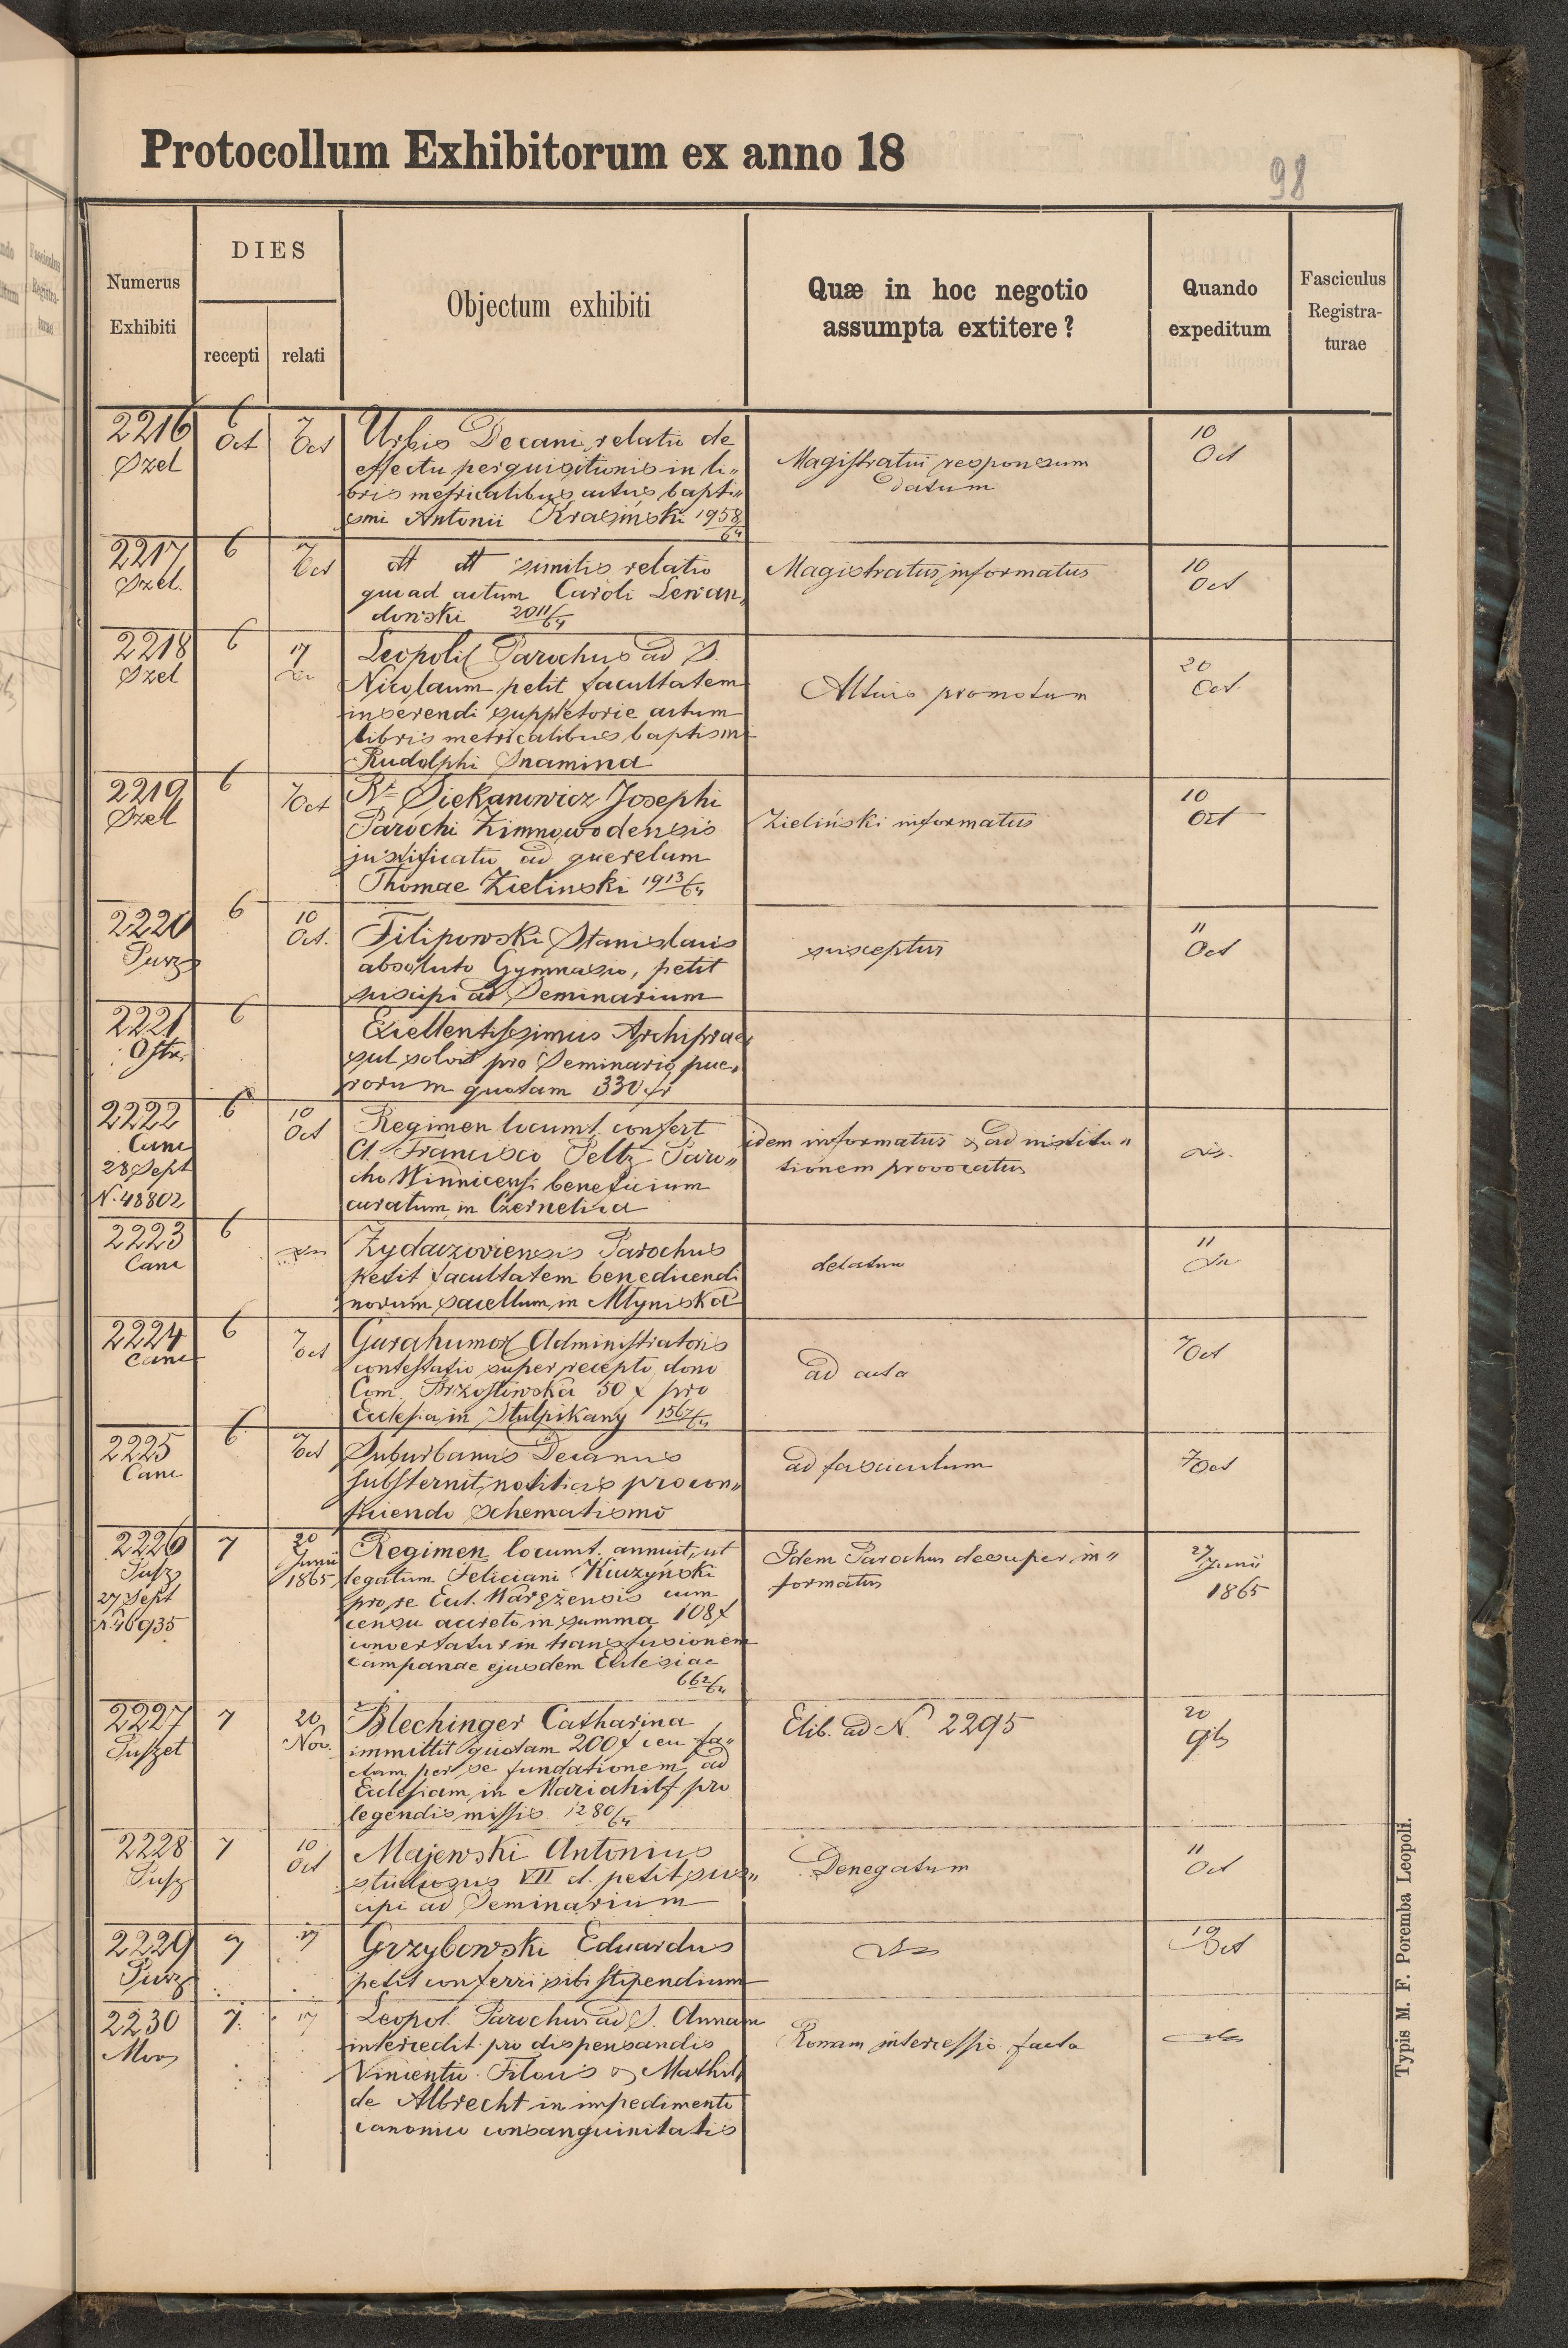 Protocollum Exhibitorum ex anno 18
98
Numerus Exhibiti
DIES
recepti
relati
Objectum exhibiti
Quæ in hoc negotio
assumpta extitere?
Quando
expeditum
Fasciculus
Registra-
turae
2216
Szel
6
Oct
7
Oct
Urbis Decani relatio de
effectu perquisitionis in li„
bris metricalibus actus bapti„
smi Antonii Krasiński 1958/64
Magistratui responsum
datum
10
Oct
2217
Szel.
6
7
Oct
similis relatio
quoad actum Caroli Lewan„
dowski 2011/64
Magistratus informatus
10
Oct
2218
Szel
6
17
Leopol Parochus ad S.
Nicolaum petit facultatem
inserendi suppletorie actum
libris metricalibus baptismi
Rudolphi Snamina
Altius promotum
20
Oct.
2219
Szel
6
7
Oct
Rt Siekanowicz Josephi
Parochi Zimnowodensis
justificatio ad querelam
Thomae Zielinski 1913/64
Zieliński informatus
10
Oct
2220
6
10
Oct.
Filipowski Stanislaus
absoluto Gymnasio, petit
suscipi ad Seminarium
susceptus
11
Oct
2221
Ostr.
6
Excellentissimus Archiprae„
sul solvit pro Seminario pue„
rorum quotam 330 fr
2222
Canc
28 Sept
N. 48802
6
10
Oct
Regimen locumt. confert
Cl. Francisco Peltz Paro„
cho Winnicensi beneficium
curatum in Czernelica
idem informatus & ad institu„
tionem provocatus
2223
Canc
6
Zydaczoviensis Parochus
petit facultatem benedicendi
novum sacellum in Młyniska
delatum
11
2224
Canc
6
7
Oct
Gurahumor Administratoris
contestatio super recepto dono
Com. Brzostowska 50 f pro
Ecclesia in Stulpikany 1567/64
ad acta
7
Oct
2225
Canc
6
7
Oct
Suburbanus Decanus
substernit notitias pro con„
ficiendo schematismo
ad fasciculum
7
Oct
2226
27 Sept
N. 46935
7
20
Junii
1865
Regimen locumt. annuit, ut
legatum Feliciani Kuczyński
pro re Eccl. Waręzensis cum
censu accreto in summa 108 f
convertatur in transfusionem
campanae ejusdem Ecclesiae
662/64
Idem Parochus desuper in„
formatus
27
Junii
1865
2227
7
20
Nov.
Blechinger Catharina
immittit quotam 200 f ceu fa„
ctam per se fundationem ad
Ecclesiam in Mariahilf pro
legendis missis 1280/64
Elib. ad N. 2295
20
9b
2228
7
10
Oct
Majewski Antonius
studiosus VII cl. petit sus„
cipi ad Seminarium
Denegatum
11
Oct
2229
7
17
Grzybowski Eduardus
petit conferri sibi stipendium
19
Oct
2230
7
17
Leopol. Parochus ad S. Annam
intercedit pro dispensandis
Vincentio Filous & Mathil
de Albrecht in impedimento
canonico consanguinitatis
Romam intercessio facta
Typis M. F. Poremba Leopoli.